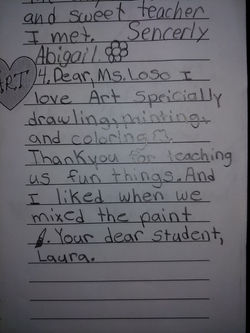 and sweet teacher
I met. Sencerly
Abigail.
ART
4. Dear, Ms. Loso I
love Art Speicially
drawling, painting,
and coloring
Thankyou for teaching
us fun things. And
I liked when we
mixed the paint
. Your dear student,
Laura.